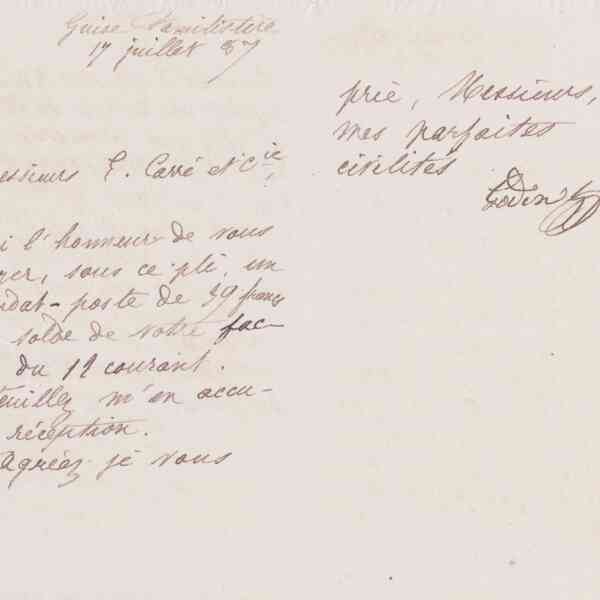 Guise Familistère
17 juillet 87
essieurs E. Carré et Cie,
i l'honneur de vous
yer, sous ce pli, un
ndat-poste de 39 francs
solde de votre fac-
du 12 courant.
euillez m'en accu-
réception.
Agréez je vous
prie, Messieurs,
mes parfaites
civilités
Godin